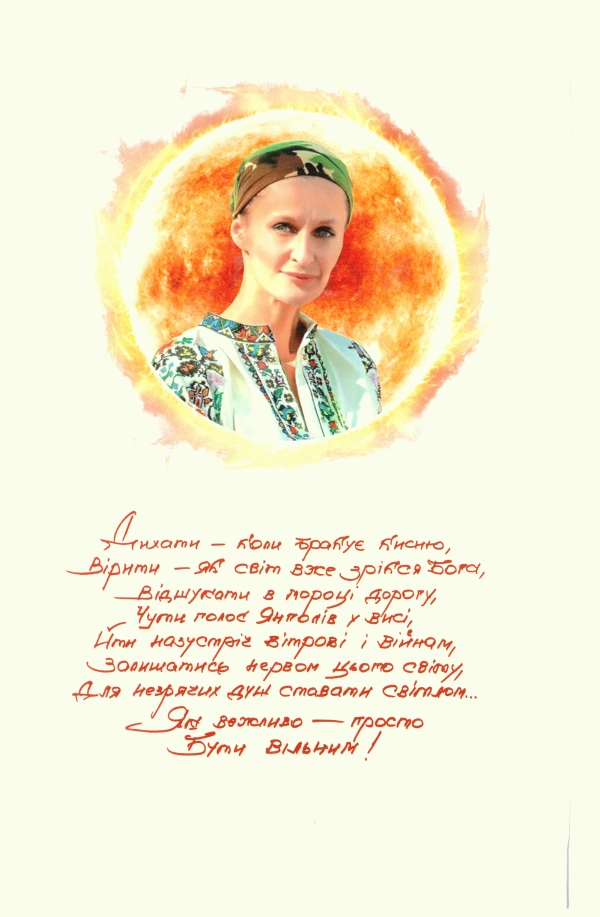 Дихати — коли бракує кисню,
Вірити — як світ вже зрікся Бога,
Відшукати в мороці дорогу,
Чути голос Янголів у висі,
Йти назустріч вітрові і війнам,
Залишатись нервом цього світу,
Для незрячих душ ставати світлом...
Як важливо — просто
Бути вільним!